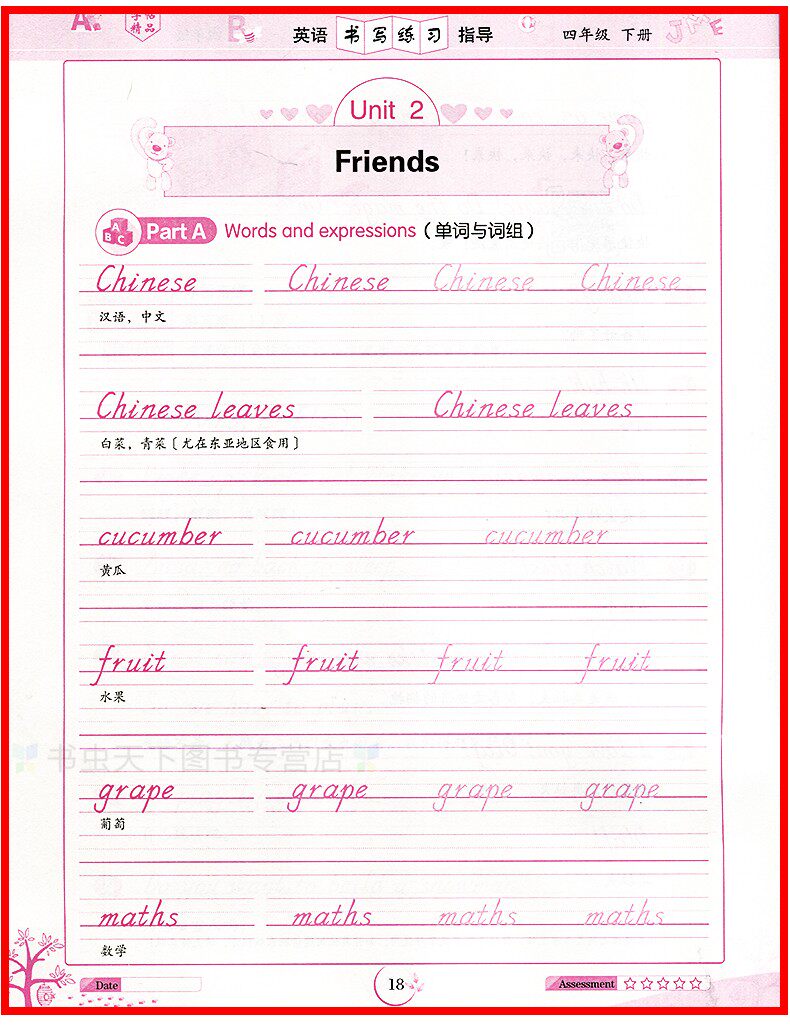 A
字帖
精品
B
英语 书写练习 指导
四年级 下册
Unit 2
Friends
ABC Part A Words and expressions（单词与词组）
Chinese Chinese Chinese Chinese
汉语，中文
Chinese leaves Chinese leaves
白菜，青菜〔尤在东亚地区食用〕
cucumber cucumber cucumber
黄瓜
fruit fruit fruit fruit
水果
书虫天下图书专营店
grape grape grape grape
葡萄
maths maths maths maths
数学
Date 18 Assessment ☆☆☆☆☆